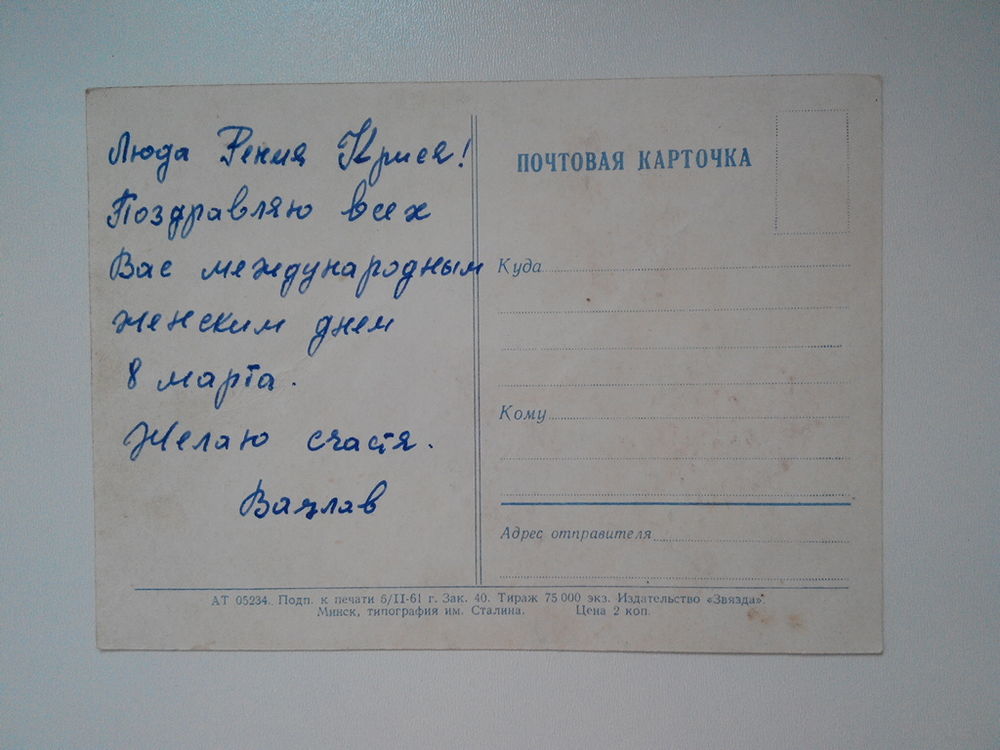 Люда Рения Крися!
Поздравляю всех
Вас международным
женским днем
8 марта.
Желаю счастя.
Вацлав
ПОЧТОВАЯ КАРТОЧКА
Куда
Кому
Адрес отправителя
АТ 05234. Подп. к печати 6/II-61 г. Зак. 40. Тираж 75 000 экз. Издательство «Звязда».
Минск, типография им. Сталина. Цена 2 коп.